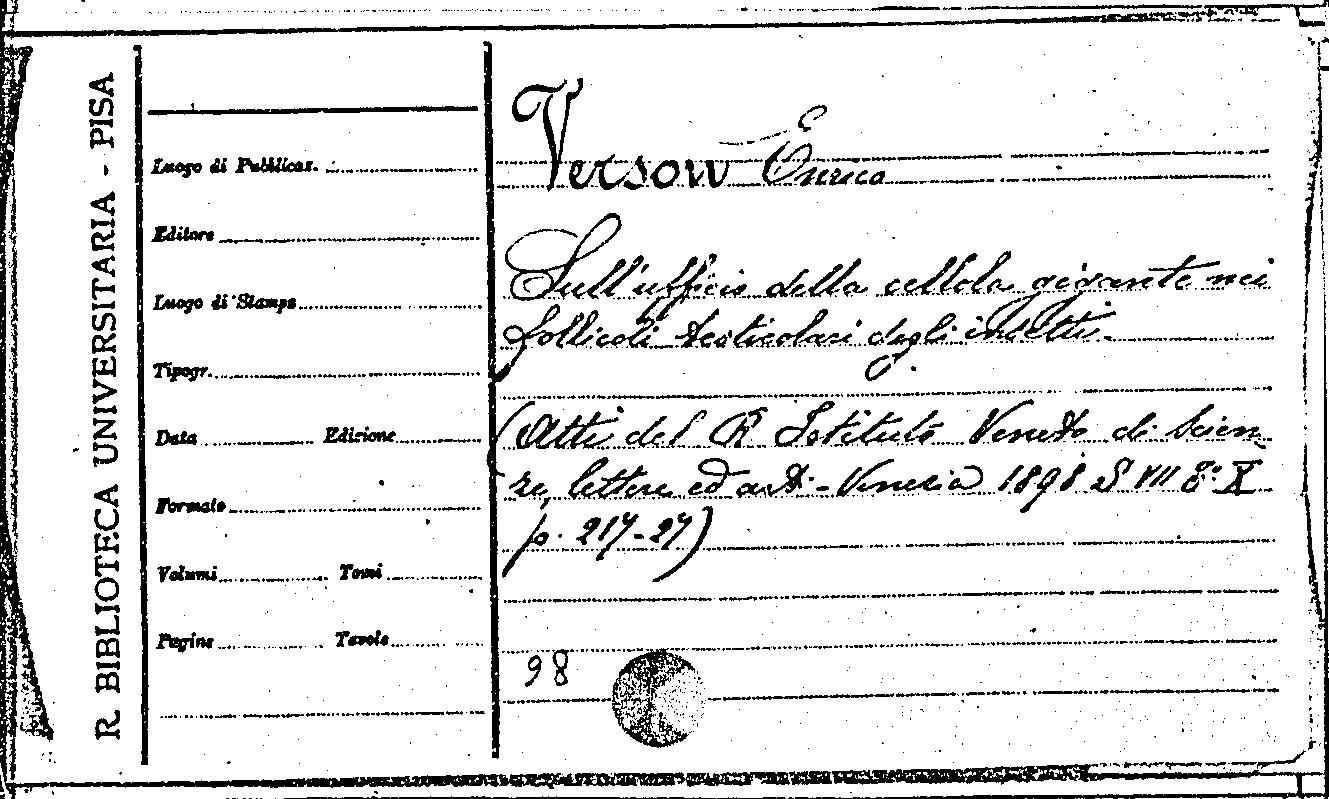 R. BIBLIOTECA UNIVERSITARIA - PISA
Luogo di Pubblicaz.
Editore
Luogo di Stampa
Tipogr.
Data Edizione
Formato
Volumi Tomi
Pagine Tavole
Verson Enrico
Sull'ufficio della cellola gigante nei
follicoli testicolari degli insetti.
(Atti del R Istituto Veneto di Scien
ze, lettere ed arti - Venezia 1898 S VII T. X
p. 217-27)
98